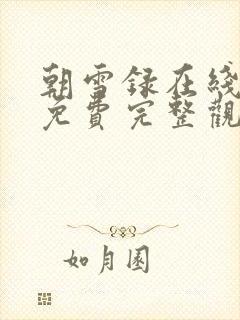 朝雪録在綫
免費完整觀
如月園